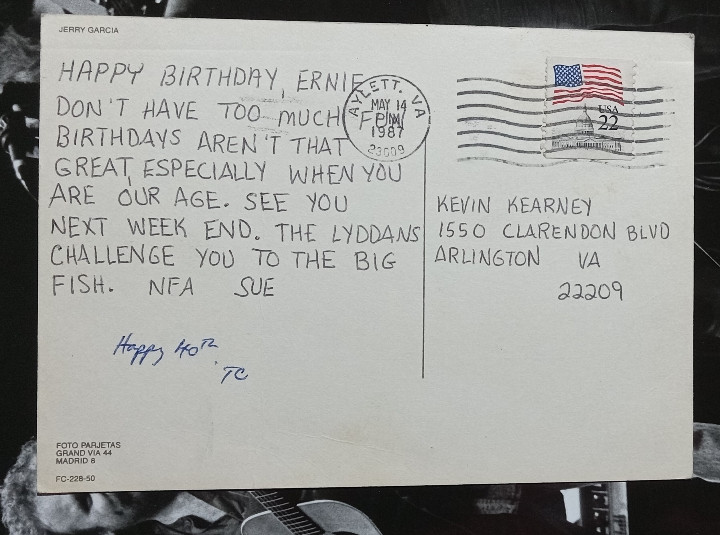 JERRY GARCIA
HAPPY BIRTHDAY, ERNIE
DON'T HAVE TOO MUCH
BIRTHDAYS AREN'T THAT
GREAT, ESPECIALLY WHEN YOU
ARE OUR AGE. SEE YOU
NEXT WEEK END. THE LYDDANS
CHALLENGE YOU TO THE BIG
FISH. NFA SUE
Happy 40th
TC
FOTO PARJETAS
GRAND VIA 44
MADRID 8
FC-228-50
AYLETT, VA
MAY 14
PM
1987
23009
USA
22
KEVIN KEARNEY
1550 CLARENDON BLVD
ARLINGTON VA
22209